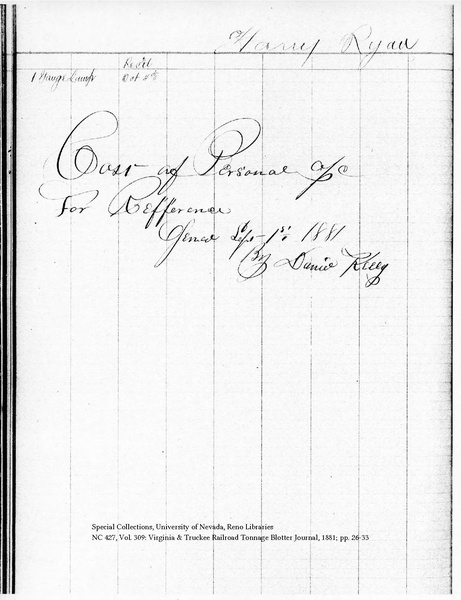 Harry Ryan
Rec'd
1 Gauge Lamp Oct
Cost of Personal a/c
For Refference
Genoa Sept 1st 1881
By Daniel
Special Collections, University of Nevada, Reno Libraries
NC 427, Vol. 309: Virginia & Truckee Railroad Tonnage Blotter Journal, 1881; pp. 26-33